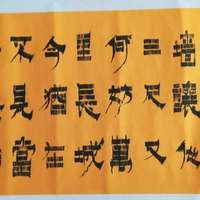 墻讓他
三尺又
何妨萬
里長城
今猶在
不見當